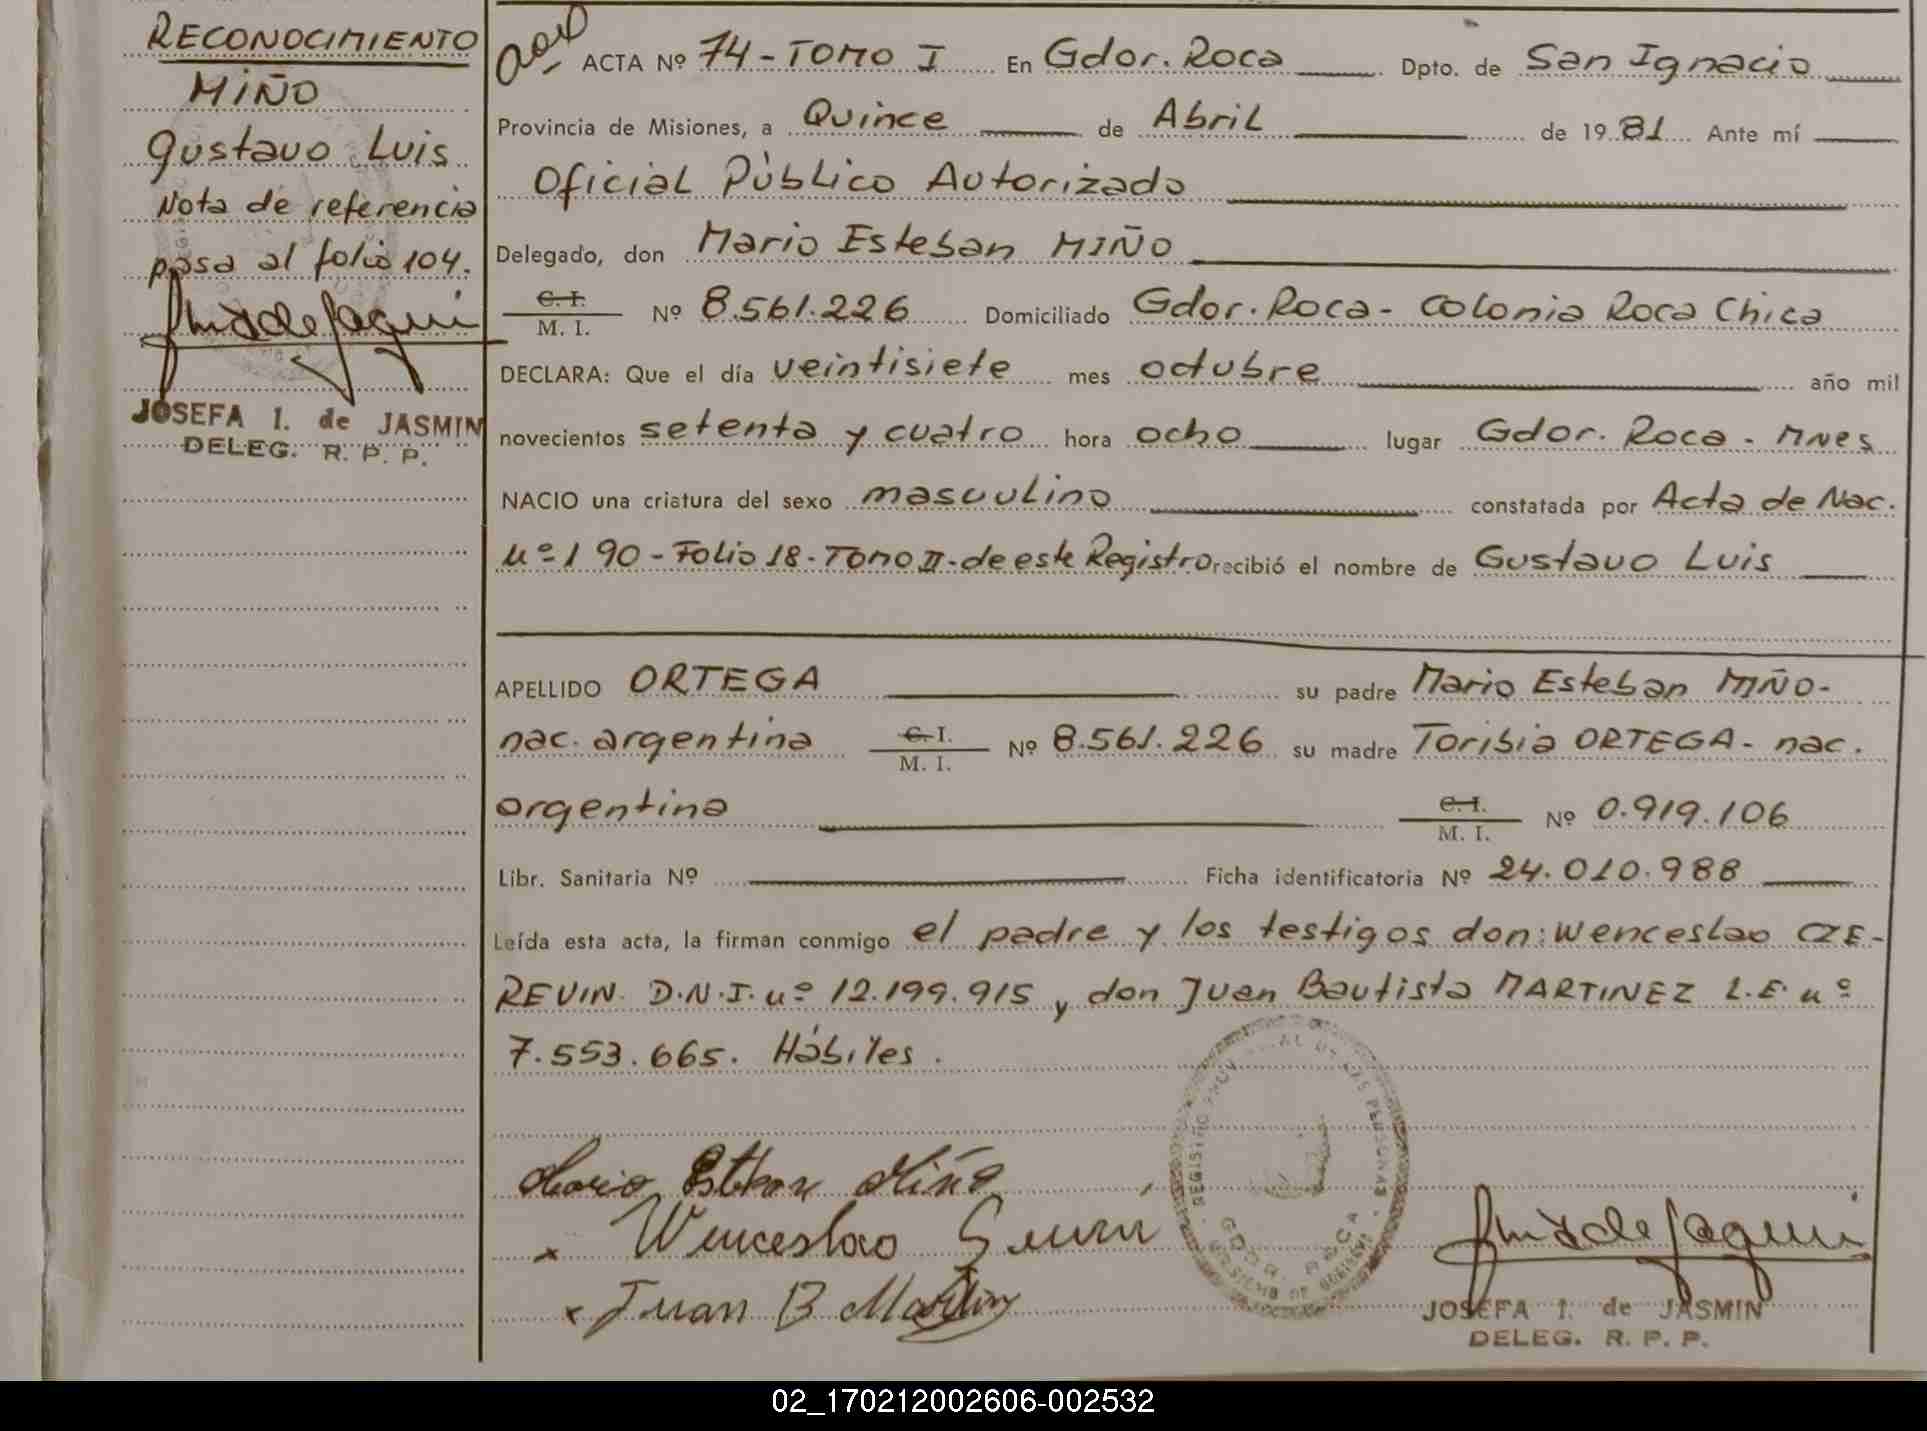 RECONOCIMIENTO
MIÑO
Gustavo Luis
Nota de referencia
pasa al folio 104.
JOSEFA I. de JASMIN
DELEG. R. P. P.
ACTA Nº 74 - TOMO I En Gdor. Roca Dpto. de San Ignacio
Provincia de Misiones, a Quince de Abril de 1981 Ante mí
Oficial Público Autorizado
Delegado, don Mario Esteban MIÑO
C. I.
M. I. Nº 8.561.226 Domiciliado Gdor. Roca - Colonia Roca Chica
DECLARA: Que el día veintisiete mes octubre año mil
novecientos setenta y cuatro hora ocho lugar Gdor. Roca - Mnes
NACIO una criatura del sexo masculino constatada por Acta de Nac.
nº 190 - Folio 18 - Tomo II - de este Registro recibió el nombre de Gustavo Luis
APELLIDO ORTEGA su padre Mario Esteban MIÑO-
nac. argentina C. I. M. I. Nº 8.561.226 su madre Toribia ORTEGA - nac.
argentina C. I. M. I. Nº 0.919.106
Libr. Sanitaria Nº Ficha identificatoria Nº 24.010.988
Leída esta acta, la firman conmigo el padre y los testigos don: Wenceslao CZE-
REVIN D.N.I. nº 12.199.915 y don Juan Bautista MARTINEZ L.E. nº
7.553.665. Hábiles.
Mario Esteban Miño
Wenceslao
Juan B Martinez
REGISTRO PROVINCIAL DE LAS PERSONAS
GDOR. ROCA
JOSEFA I. de JASMIN
DELEG. R. P. P.
02_170212002606-002532